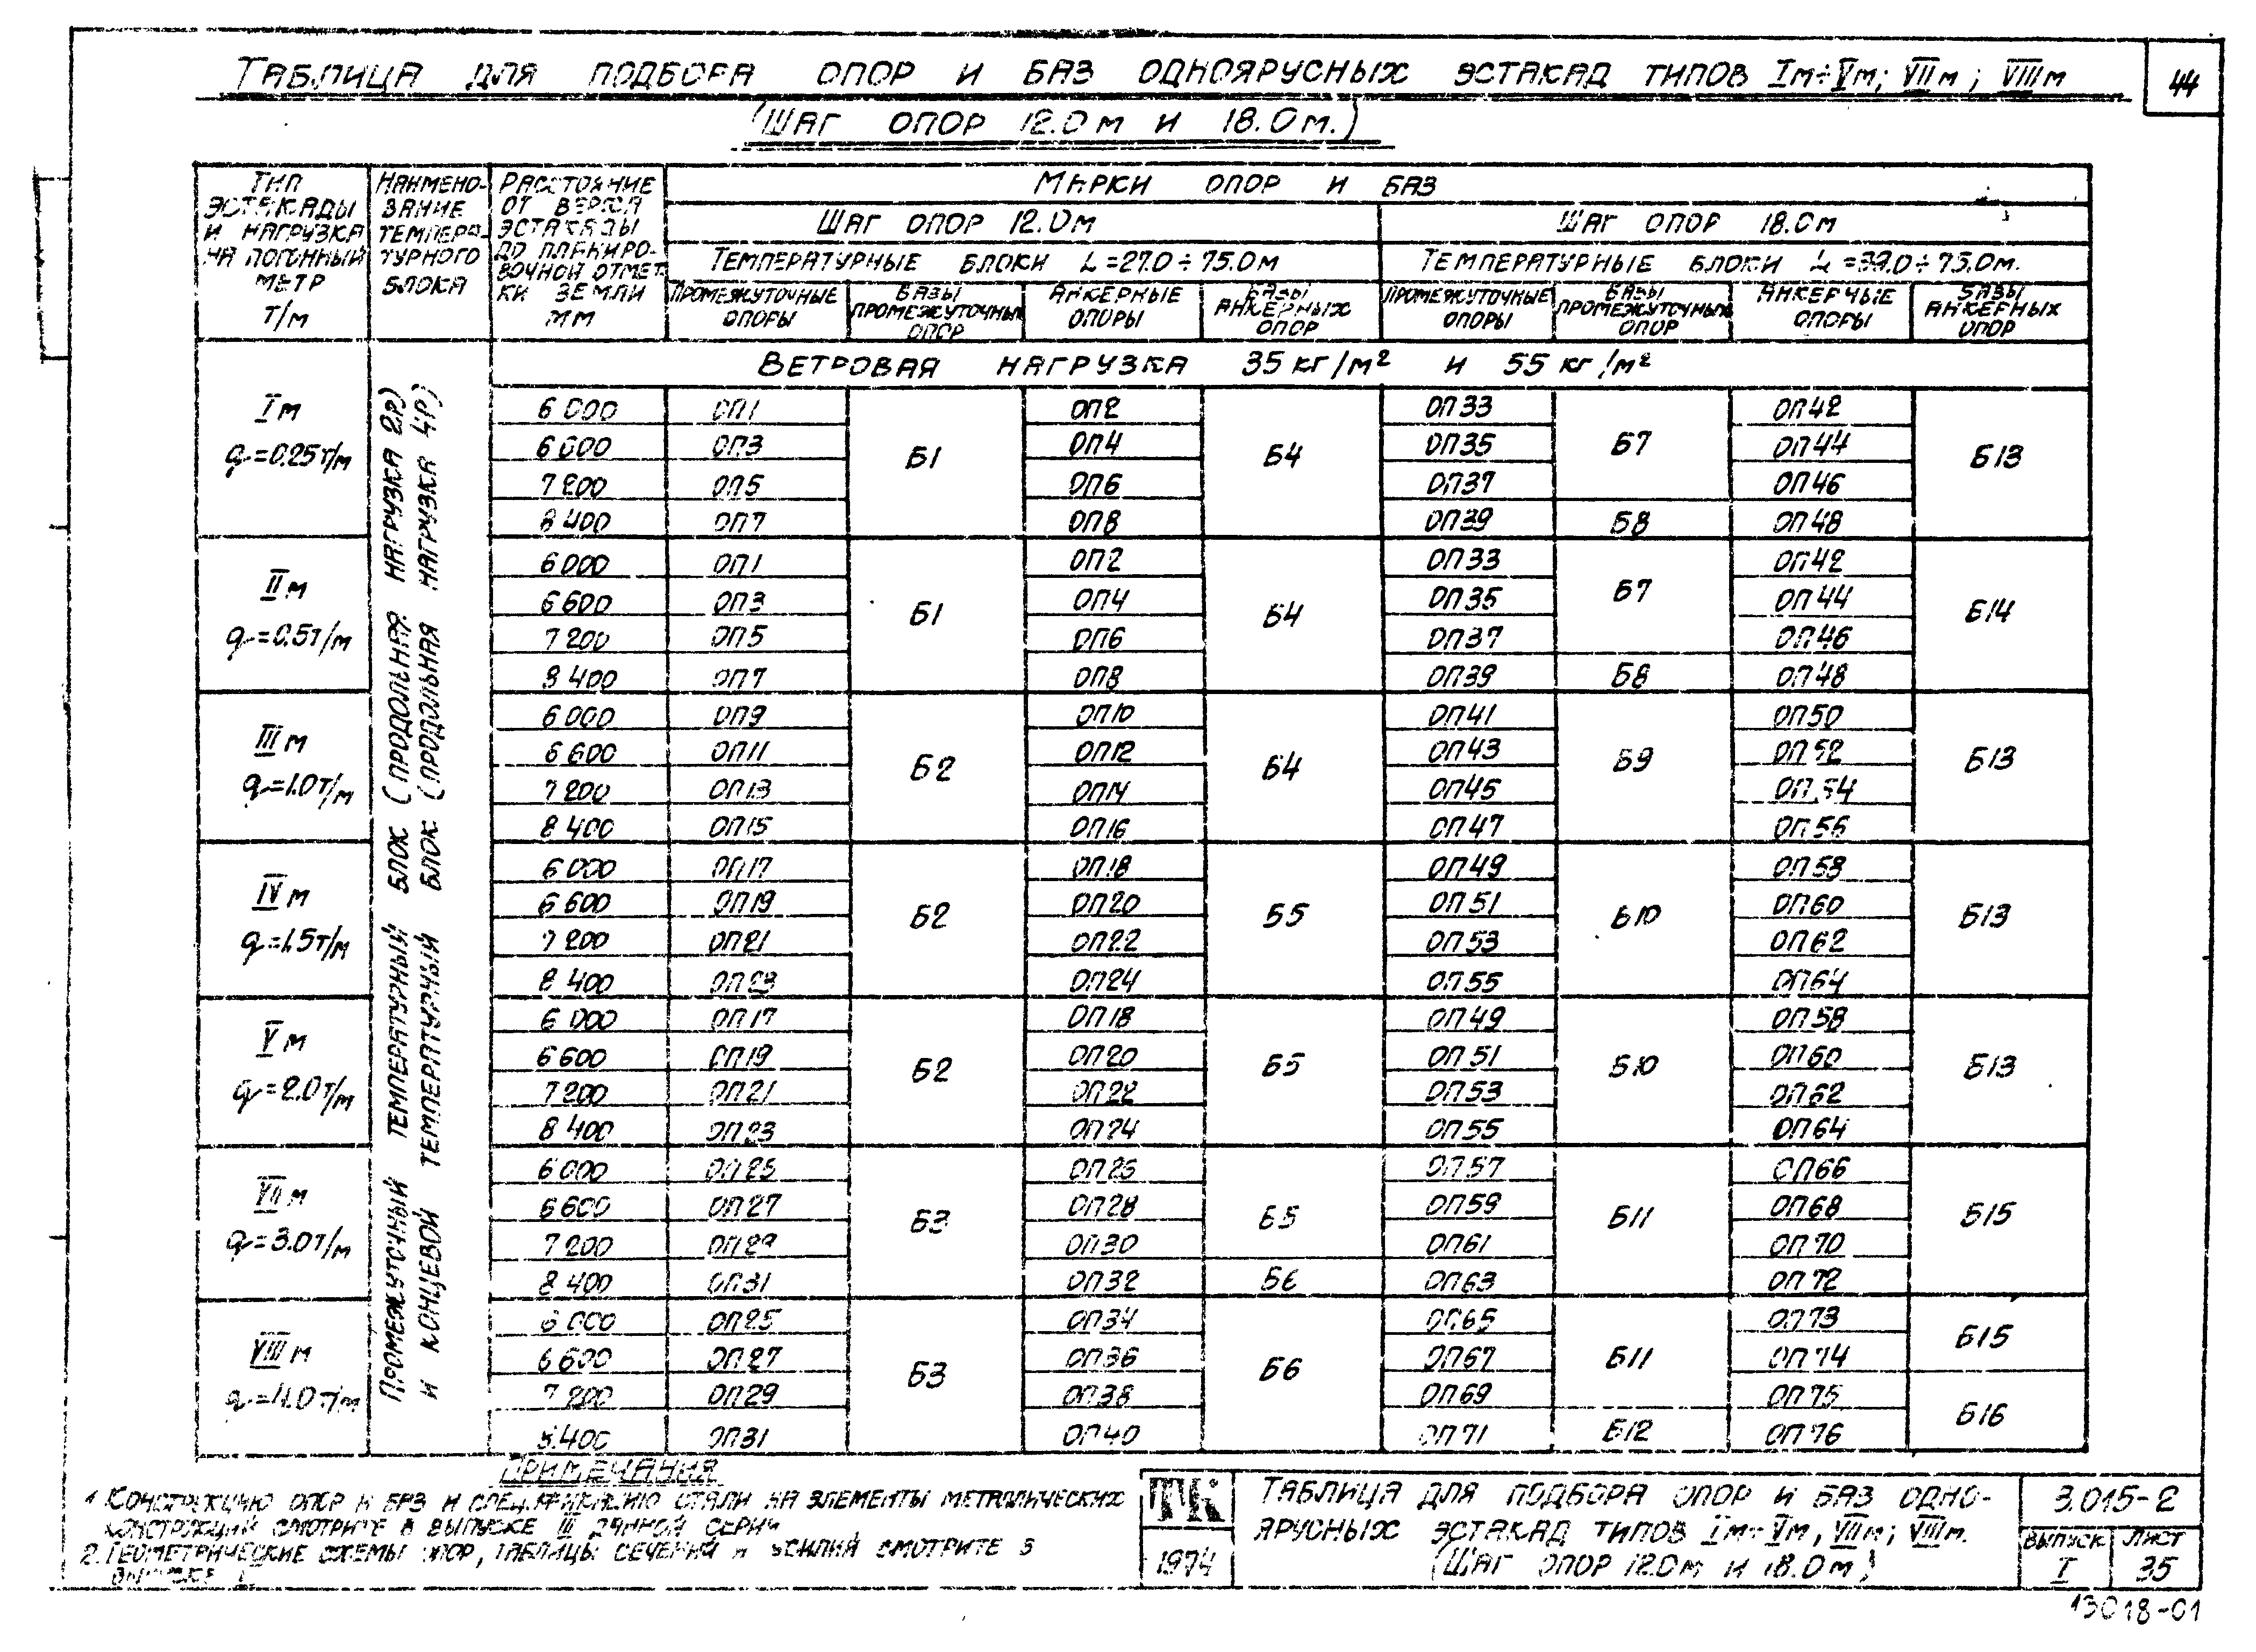 ТАБЛИЦА ДЛЯ ПОДБОРА ОПОР И БАЗ ОДНОЯРУСНЫХ ЭСТАКАД ТИПОВ Iм÷Vм; VIIм; VIIIм
44
(ШАГ ОПОР 12.0м И 18.0м.)
ТИП ЭСТАКАДЫ И НАГРУЗКА НА ПОГОННЫЙ МЕТР Т/м
НАИМЕНО-ВАНИЕ ТЕМПЕРА-ТУРНОГО БЛОКА
РАССТОЯНИЕ ОТ ВЕРХА ЭСТАКАДЫ ДО ПЛАНИРО-ВОЧНОЙ ОТМЕТ-КИ ЗЕМЛИ ММ
МАРКИ ОПОР И БАЗ
ШАГ ОПОР 12.0м
ШАГ ОПОР 18.0м
ТЕМПЕРАТУРНЫЕ БЛОКИ L=27.0÷75.0м
ТЕМПЕРАТУРНЫЕ БЛОКИ L=39.0÷75.0м.
ПРОМЕЖУТОЧНЫЕ ОПОРЫ
БАЗЫ ПРОМЕЖУТОЧНЫХ ОПОР
АНКЕРНЫЕ ОПОРЫ
БАЗЫ АНКЕРНЫХ ОПОР
ПРОМЕЖУТОЧНЫЕ ОПОРЫ
БАЗЫ ПРОМЕЖУТОЧНЫХ ОПОР
АНКЕРНЫЕ ОПОРЫ
БАЗЫ АНКЕРНЫХ ОПОР
ПРОМЕЖУТОЧНЫЙ ТЕМПЕРАТУРНЫЙ БЛОК (ПРОДОЛЬНАЯ НАГРУЗКА 2Р)
И КОНЦЕВОЙ ТЕМПЕРАТУРНЫЙ БЛОК (ПРОДОЛЬНАЯ НАГРУЗКА 4Р)
ВЕТРОВАЯ НАГРУЗКА 35 кг/м² И 55 кг/м²
Iм
q=0.25т/м
6 000 ОП1 Б1 ОП2 Б4 ОП33 Б7 ОП42 Б13
6 600 ОП3 ОП4 ОП35 ОП44
7 200 ОП5 ОП6 ОП37 ОП46
8 400 ОП7 ОП8 ОП39 Б8 ОП48
IIм
q=0.5т/м
6 000 ОП1 Б1 ОП2 Б4 ОП33 Б7 ОП42 Б14
6 600 ОП3 ОП4 ОП35 ОП44
7 200 ОП5 ОП6 ОП37 ОП46
8 400 ОП7 ОП8 ОП39 Б8 ОП48
IIIм
q=1.0т/м
6 000 ОП9 Б2 ОП10 Б4 ОП41 Б9 ОП50 Б13
6 600 ОП11 ОП12 ОП43 ОП52
7 200 ОП13 ОП14 ОП45 ОП54
8 400 ОП15 ОП16 ОП47 ОП56
IVм
q=1.5т/м
6 000 ОП17 Б2 ОП18 Б5 ОП49 Б10 ОП58 Б13
6 600 ОП19 ОП20 ОП51 ОП60
7 200 ОП21 ОП22 ОП53 ОП62
8 400 ОП23 ОП24 ОП55 ОП64
Vм
q=2.0т/м
6 000 ОП17 Б2 ОП18 Б5 ОП49 Б10 ОП58 Б13
6 600 ОП19 ОП20 ОП51 ОП60
7 200 ОП21 ОП22 ОП53 ОП62
8 400 ОП23 ОП24 ОП55 ОП64
VIIм
q=3.0т/м
6 000 ОП25 Б3 ОП26 Б5 ОП57 Б11 ОП66 Б15
6 600 ОП27 ОП28 ОП59 ОП68
7 200 ОП29 ОП30 ОП61 ОП70
8 400 ОП31 ОП32 Б6 ОП63 ОП72
VIIIм
q=4.0т/м
6 000 ОП25 Б3 ОП34 Б6 ОП65 Б11 ОП73 Б15
6 600 ОП27 ОП36 ОП67 ОП74
7 200 ОП29 ОП38 ОП69 ОП75 Б16
8.400 ОП31 ОП40 ОП71 Б12 ОП76
ПРИМЕЧАНИЯ
1. КОНСТРУКЦИЮ ОПОР И БАЗ И СПЕЦИФИКАЦИЮ СТАЛИ НА ЭЛЕМЕНТЫ МЕТАЛЛИЧЕСКИХ
КОНСТРУКЦИЙ СМОТРИТЕ В ВЫПУСКЕ III ДАННОЙ СЕРИИ
2. ГЕОМЕТРИЧЕСКИЕ СХЕМЫ ОПОР, ТАБЛИЦЫ СЕЧЕНИЙ И УСИЛИЙ СМОТРИТЕ В
ВЫПУСКЕ
ТК
1974
ТАБЛИЦА ДЛЯ ПОДБОРА ОПОР И БАЗ ОДНО-
ЯРУСНЫХ ЭСТАКАД ТИПОВ Iм÷Vм, VIIм; VIIIм.
(ШАГ ОПОР 12.0м И 18.0м)
3.015-2
ВЫПУСК I
ЛИСТ 35
13018-01